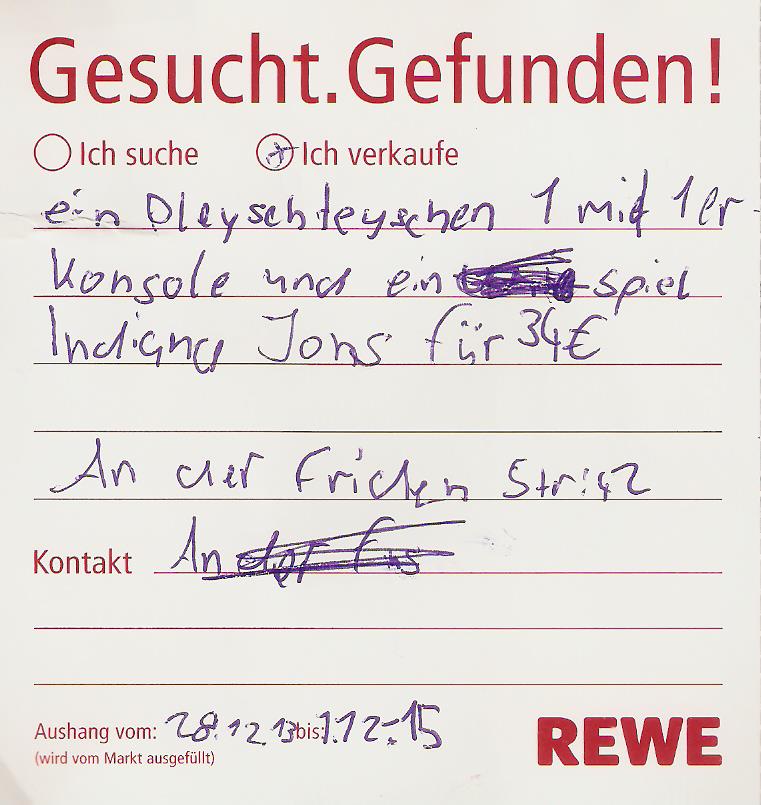 Gesucht. Gefunden!
Ich suche Ich verkaufe
ein Pleyschteyschen 1 mit 1er
Konsole und ein spiel
Indiana Jons für 34€
An der Fricken Str:42
Kontakt An
Aushang vom: 28.12.13 bis: 1.12-15
(wird vom Markt ausgefüllt)
REWE